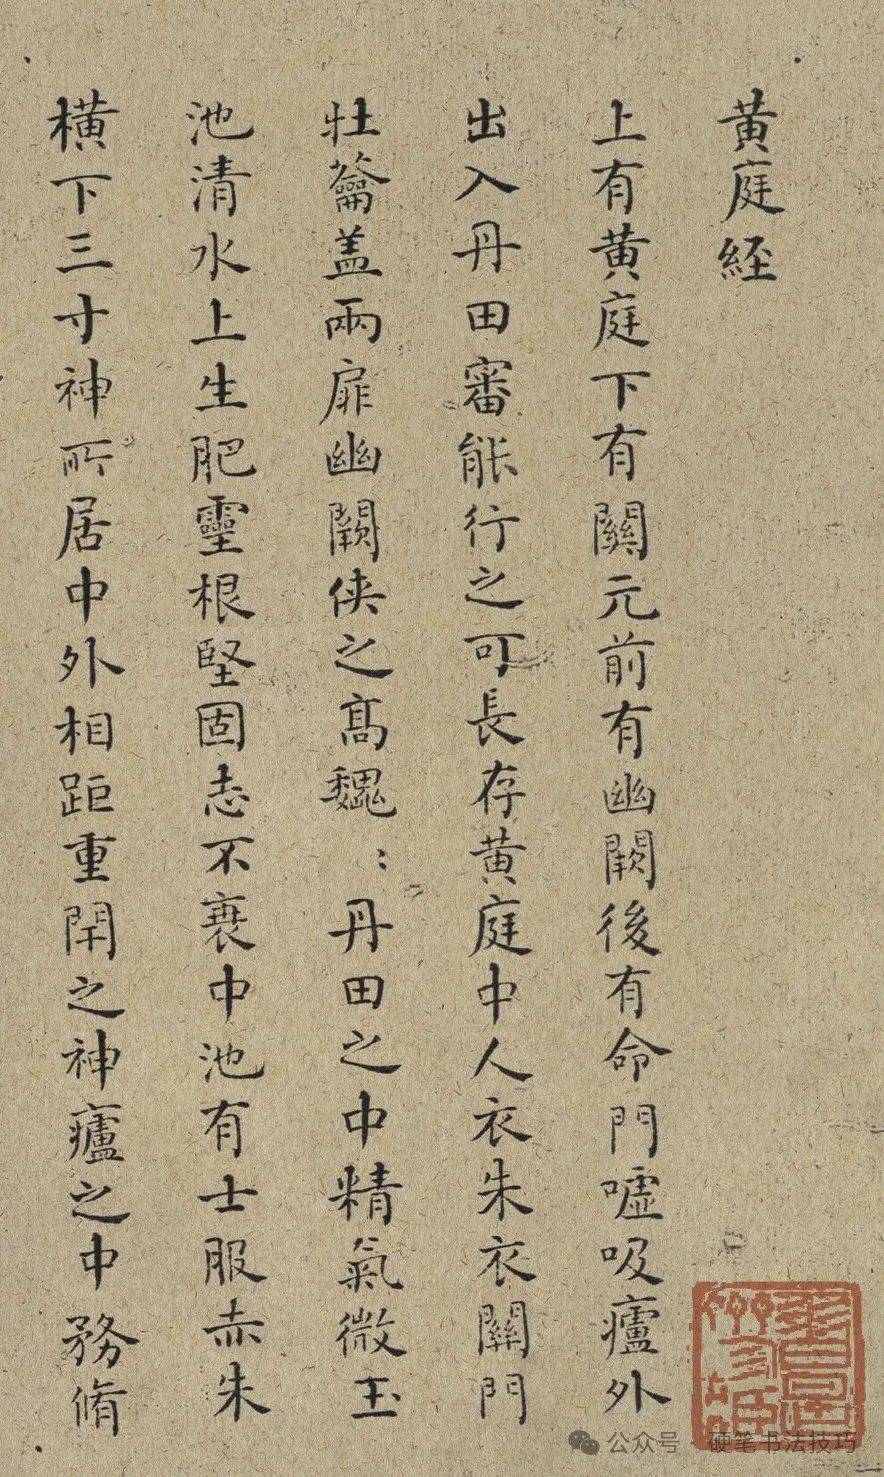 黄庭經
上有黄庭下有關元前有幽闕後有命門噓吸廬外
出入丹田審能行之可長存黄庭中人衣朱衣關門
壯籥盖兩扉幽闕侠之髙魏〻丹田之中精氣微玉
池清水上生肥靈根堅固志不衰中池有士服赤朱
横下三寸神所居中外相距重閇之神廬之中務脩
公众号 · 硬笔书法技巧